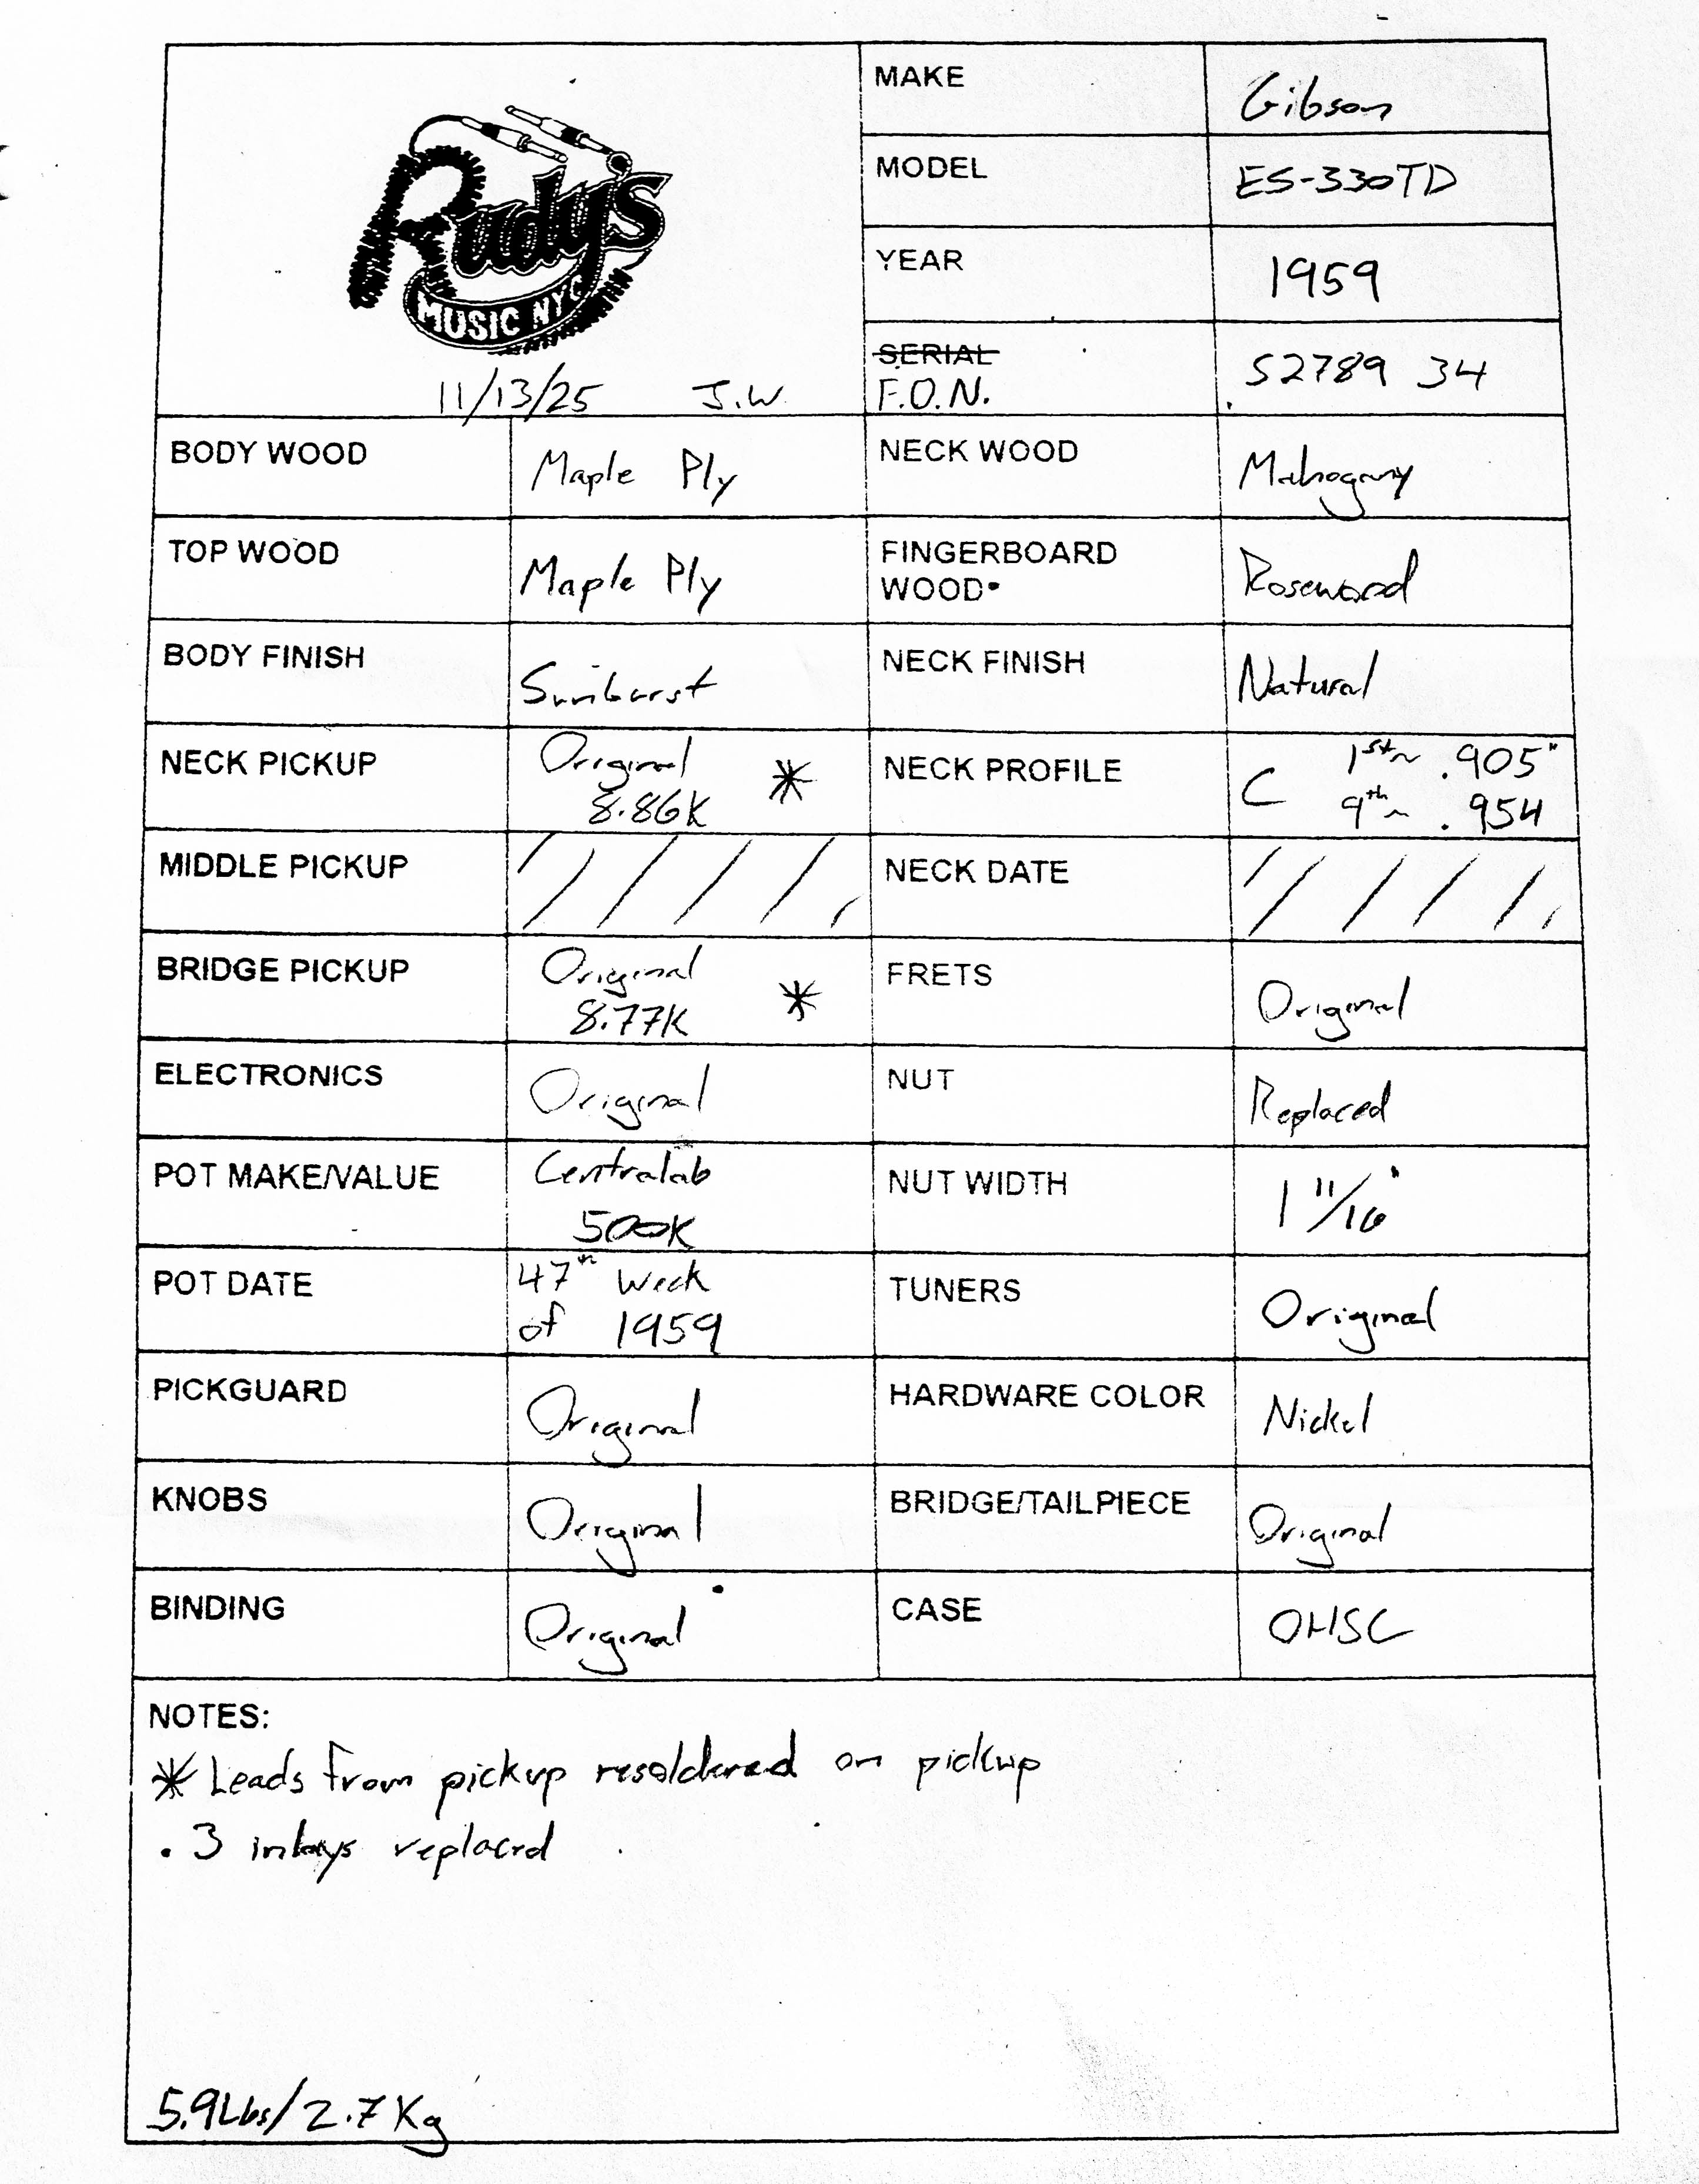 Rudy's
MUSIC NYC
11/13/25 J.W.
MAKE Gibson
MODEL ES-330TD
YEAR 1959
SERIAL
F.O.N. S2789 34
BODY WOOD Maple Ply
NECK WOOD Mahogany
TOP WOOD Maple Ply
FINGERBOARD
WOOD• Rosewood
BODY FINISH Sunburst
NECK FINISH Natural
NECK PICKUP Original
8.86K *
NECK PROFILE C 1st~ .905"
9th~ .954
MIDDLE PICKUP
NECK DATE
BRIDGE PICKUP Original
8.77K *
FRETS Original
ELECTRONICS Original
NUT Replaced
POT MAKE/VALUE Centralab
500K
NUT WIDTH 1 11/16"
POT DATE 47th Week
of 1959
TUNERS Original
PICKGUARD Original
HARDWARE COLOR Nickel
KNOBS Original
BRIDGE/TAILPIECE Original
BINDING Original
CASE OHSC
NOTES:
* Leads from pickup resoldered on pickup
• 3 inlays replaced
5.9Lbs/2.7Kg